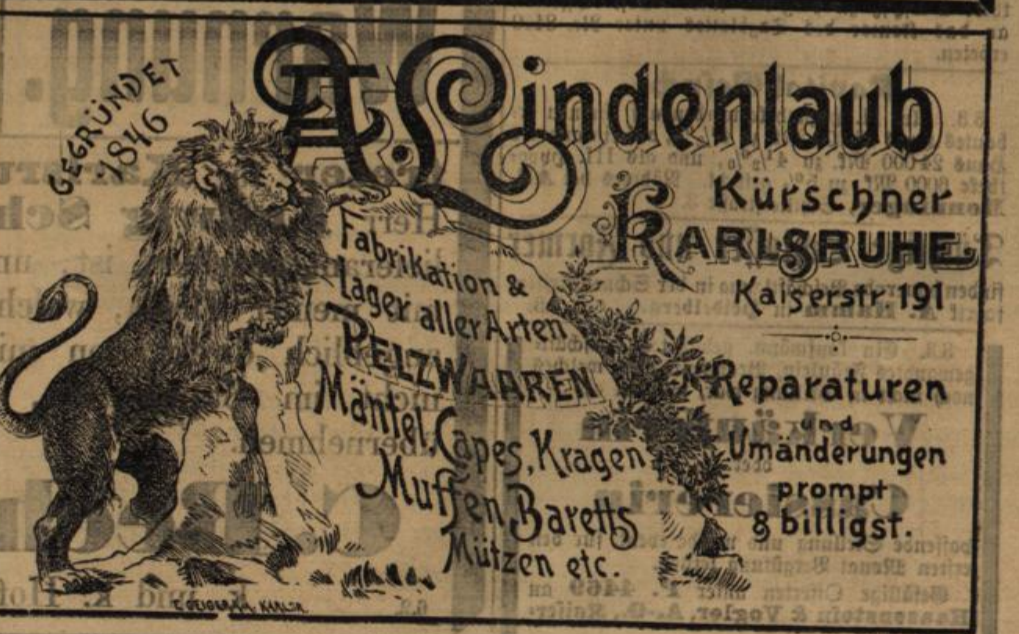 GEGRÜNDET
1846
A. Lindenlaub
Kürschner
KARLSRUHE
Kaiserstr. 191
Fabrikation &
Lager aller Arten
PELZWAAREN
Mäntel, Capes, Kragen
Muffen, Baretts
Mützen etc.
Reparaturen
und
Umänderungen
prompt
& billigst.